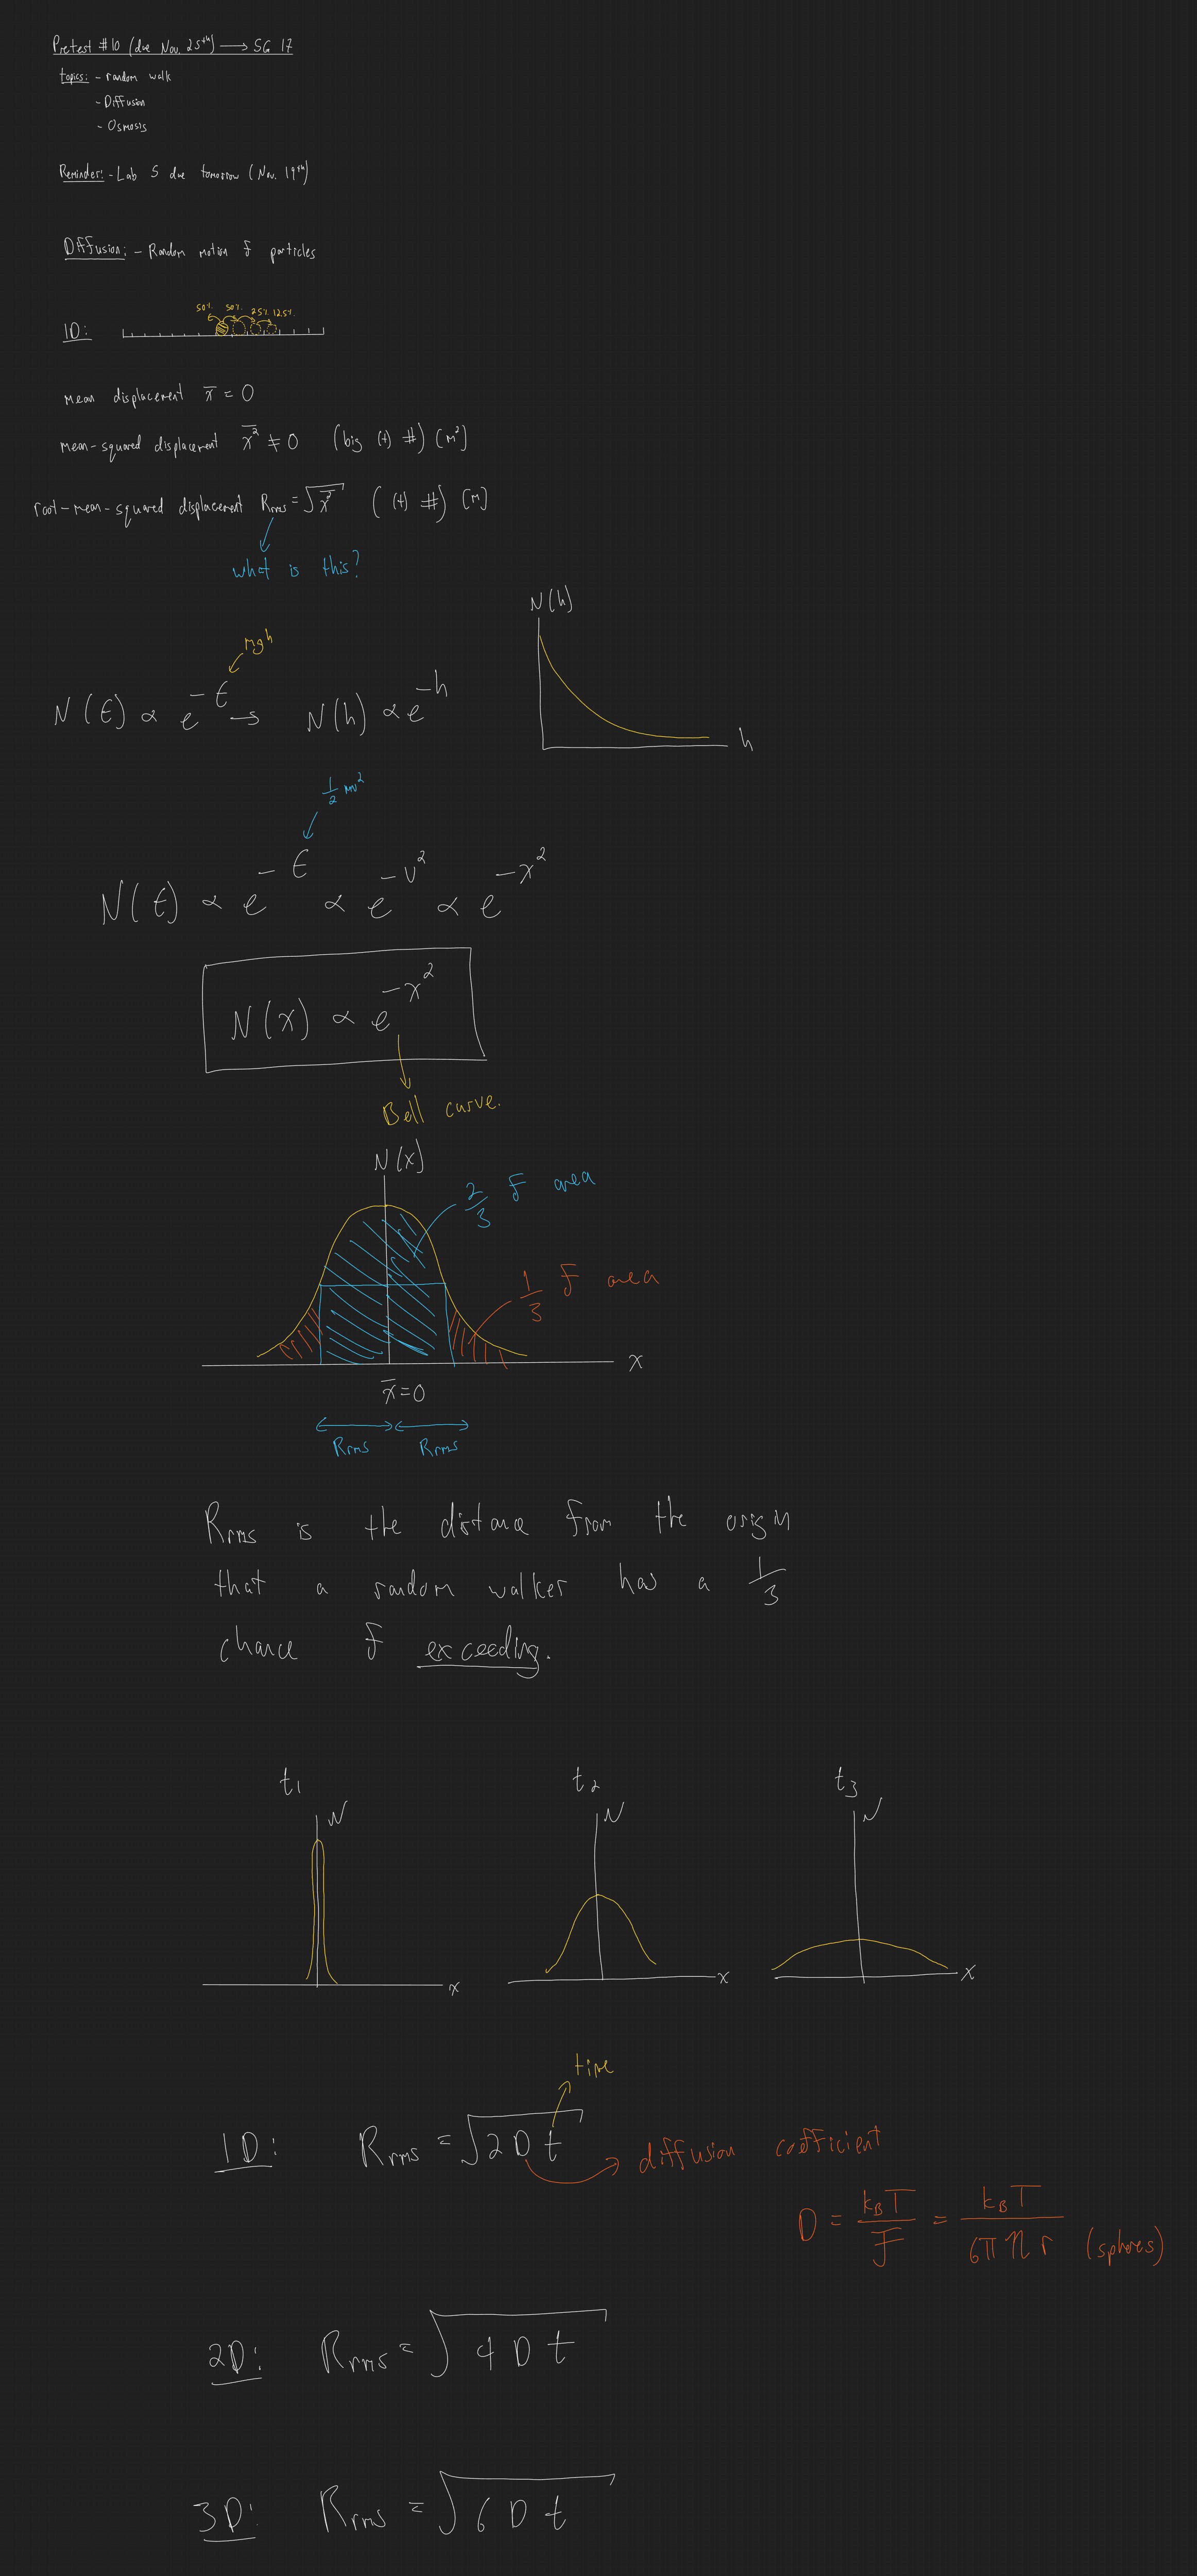 Pretest #10 (due Nov. 25th) → SG 17
topics: - random walk
- Diffusion
- Osmosis
Reminder: - Lab 5 due tomorrow (Nov. 19th)
Diffusion: - Random motion of particles
50% 50% 25% 12.5%
1D:
mean displacement x̄ = 0
mean-squared displacement x̄² ≠ 0 (big (+) #) [m²]
root-mean-squared displacement Rrms = √x̄² ((+) #) [m]
what is this?
N(h)
mgh
N(E) ∝ e^-E → N(h) ∝ e^-h
h
1/2 mv²
N(E) ∝ e^-E ∝ e^-v² ∝ e^-x²
N(x) ∝ e^-x²
Bell curve.
N(x)
2/3 of area
1/3 of area
x
x̄ = 0
Rrms Rrms
Rrms is the distance from the origin
that a random walker has a 1/3
chance of exceeding.
t1 t2 t3
N N N
x x x
time
1D: Rrms = √2Dt diffusion coefficient
D = kBT/f = kBT/6πηr (spheres)
2D: Rrms = √4Dt
3D: Rrms = √6Dt